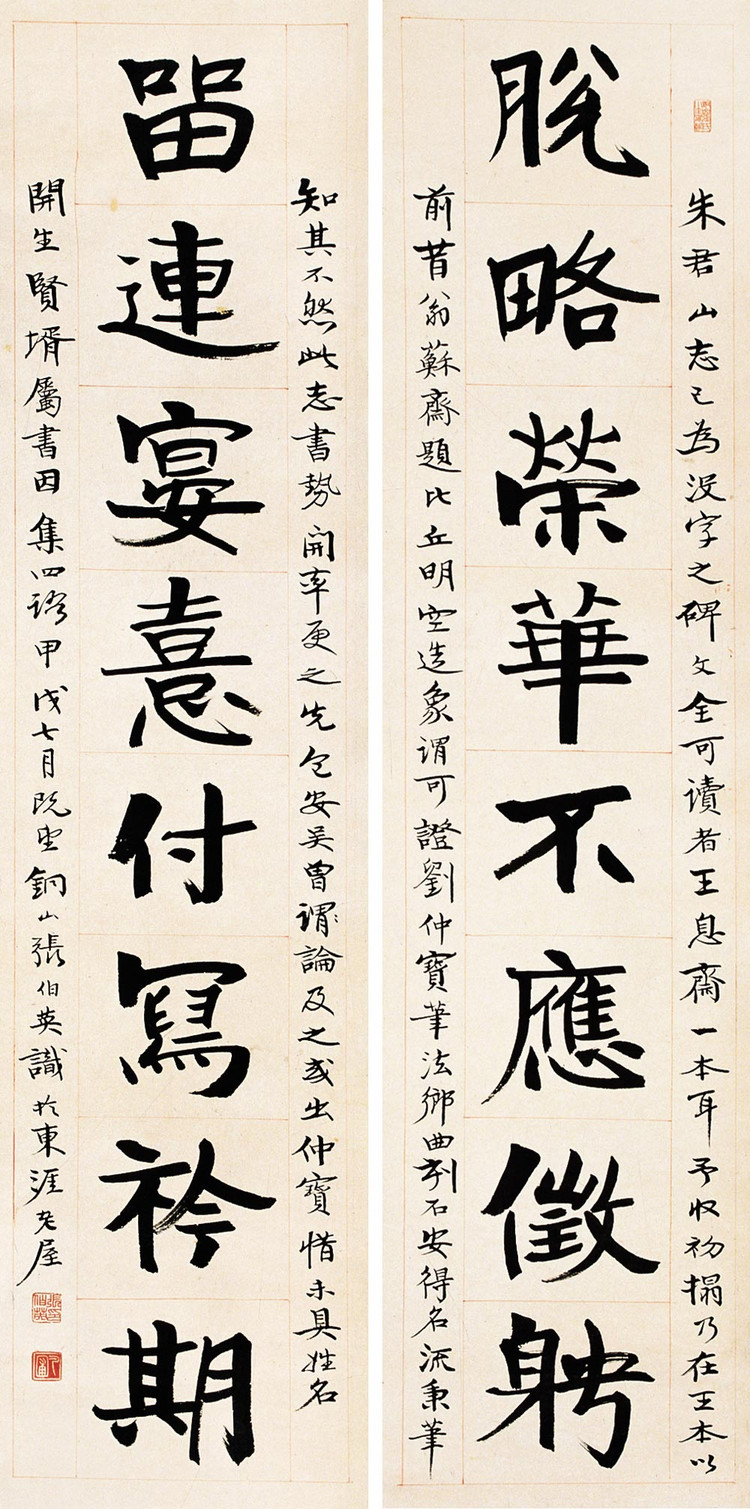 朱君山志已為没字之碑文全可讀者王息齋一本耳予收初搨乃在王本以
脫略榮華不應徵聘
前昔翁蘇齋題比丘明空造象謂可證劉仲寶筆法鄉曲刻石安得名流秉筆
知其不然此志書勢開率更之先包安吳曾謂論及之或出仲寶惜未具姓名
留連宴憙付寫衿期
開生賢壻屬書因集四語甲戌七月既望銅山張伯英識於東涯老屋